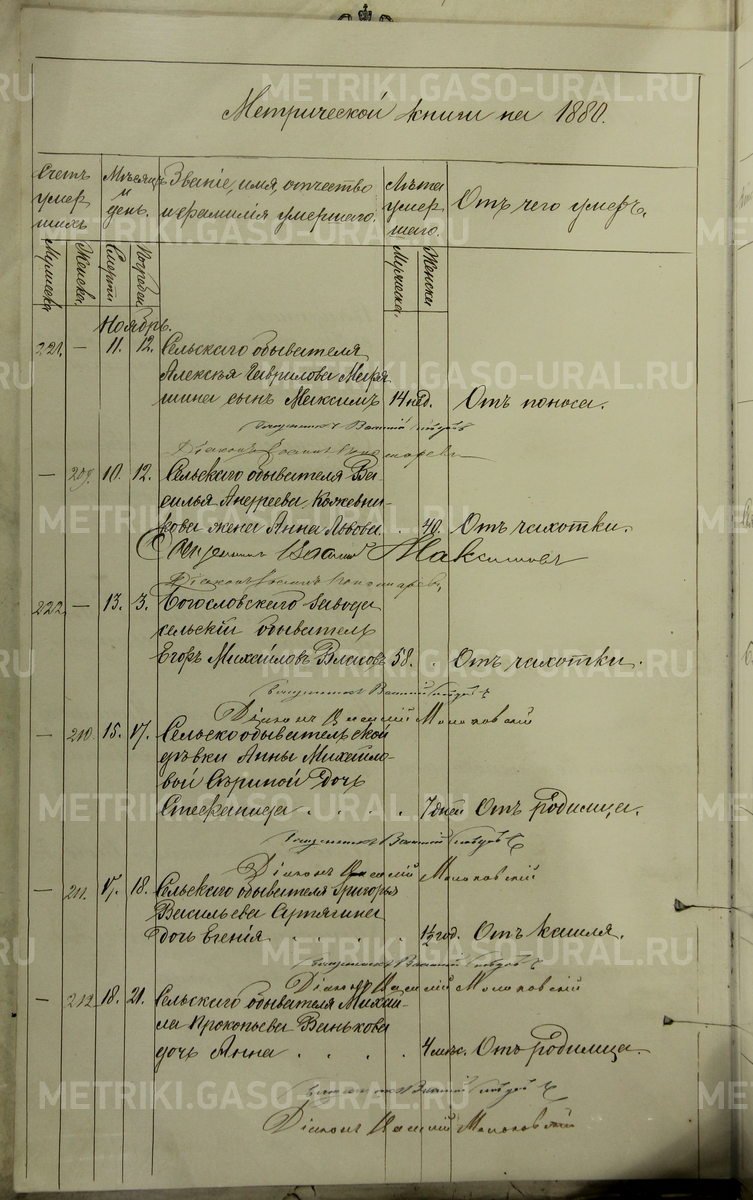 Метрической книги на 1880.
Счетъ умершихъ
Мѣсяцъ и день.
Званіе, имя, отчество и фамилія умершаго.
Лѣта умершаго.
Отъ чего умеръ.
Мужеска. Женска. Смерти. Погребен. Мужеска. Женска.
Ноябрь.
221. — 11. 12. Сельскаго обывателя
Алексѣя Гаврилова
шина сынъ Максимъ 14 нед. Отъ поноса.
Священникъ Василій
Діаконъ Іоаннъ Пономаревъ
— 209. 10. 12. Сельскаго обывателя Ва-
силья Андреева Кожевни-
кова жена Анна Львова . . 40. Отъ чахотки.
Священникъ Василій Максимовъ
Діаконъ Іоаннъ Пономаревъ
222. — 13. 3. Богословскаго завода
сельскій обыватель
Егоръ Михайловъ Власовъ 58. . Отъ чахотки.
Священникъ Василій
Діаконъ Василій Молоковскій
— 210. 15. 17. Сельскообывательской
дѣвки Анны Михайло-
вой дочь
Стефанида . . . . 7 дней Отъ родимца.
Священникъ Василій
Діаконъ Василій Молоковскій
— 211. 17. 18. Сельскаго обывателя Григорья
Васильева Сутягина
дочь Евгенія . . . . 1½ год. Отъ кашля.
Священникъ Василій
Діаконъ Василій Молоковскій
— 212. 18. 21. Сельскаго обывателя Михай-
ла Прокопьева Ванькова
дочь Анна . . . . 4 мѣс. Отъ родимца.
Священникъ Василій
Діаконъ Василій Молоковскій
METRIKI.GASO-URAL.RU